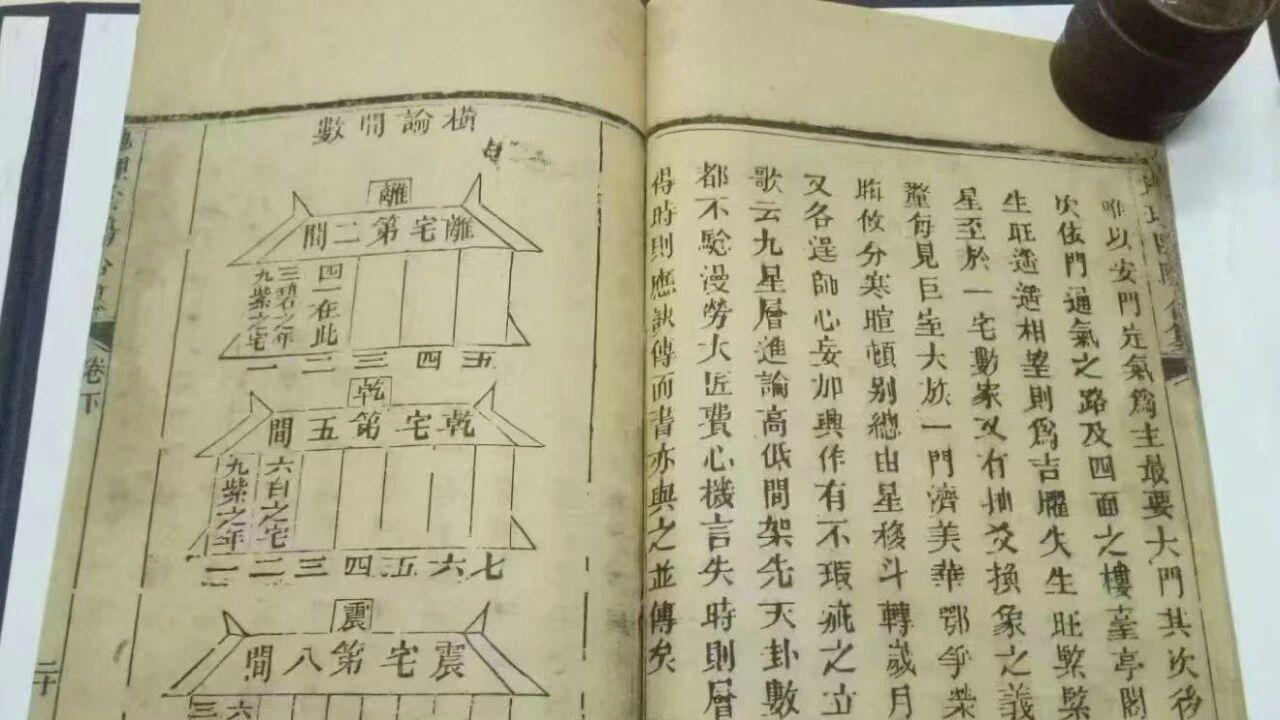 唯以安門定氣爲主最要大門其次後
次依門通氣之路及四面之樓臺亭閣
生旺遥遥相望則爲吉曜失生旺緊緊
星至於一宅數家又有抽爻換象之義
釐每見巨室大族一門濟美華鄂爭榮
晦攸分寒暄頓别總由星移斗轉歲月
又各逞師心妄加興作有不瑕疵之立
歌云九星層進論高低間架先天卦數
都不騐漫勞大匠費心機言失時則層
得時則應訣傳而書亦與之並傳矣
橫論間數
離
離宅第二間
四一在此
三碧之年
九紫之宅
五四三二一
乾
乾宅第五間
六白之宅
九紫之年
七六五四三二一
震
震宅第八間
六
三
卷下
二十